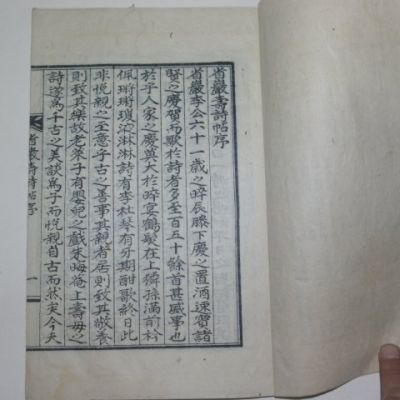 省巖壽詩帖序
省巖李公六十一歲之晬辰膝下慶之置酒速賓諸
賢之慶賀而歌於詩者多至百五十餘首甚盛事也
於乎人家之慶莫大於晬宴鶴髮在上獜孫滿前衿
佩琳琅琼液淋淋詩有李杜琴有牙期酣歌終日此
非悅親之至意乎古之善事其親者居則致其敬養
則致其樂故老萊子有嬰兒之戲朱晦菴上壽母之
詩遂爲千古之美談爲子而悅親自古而然矣今夫
省巖壽詩帖序 一